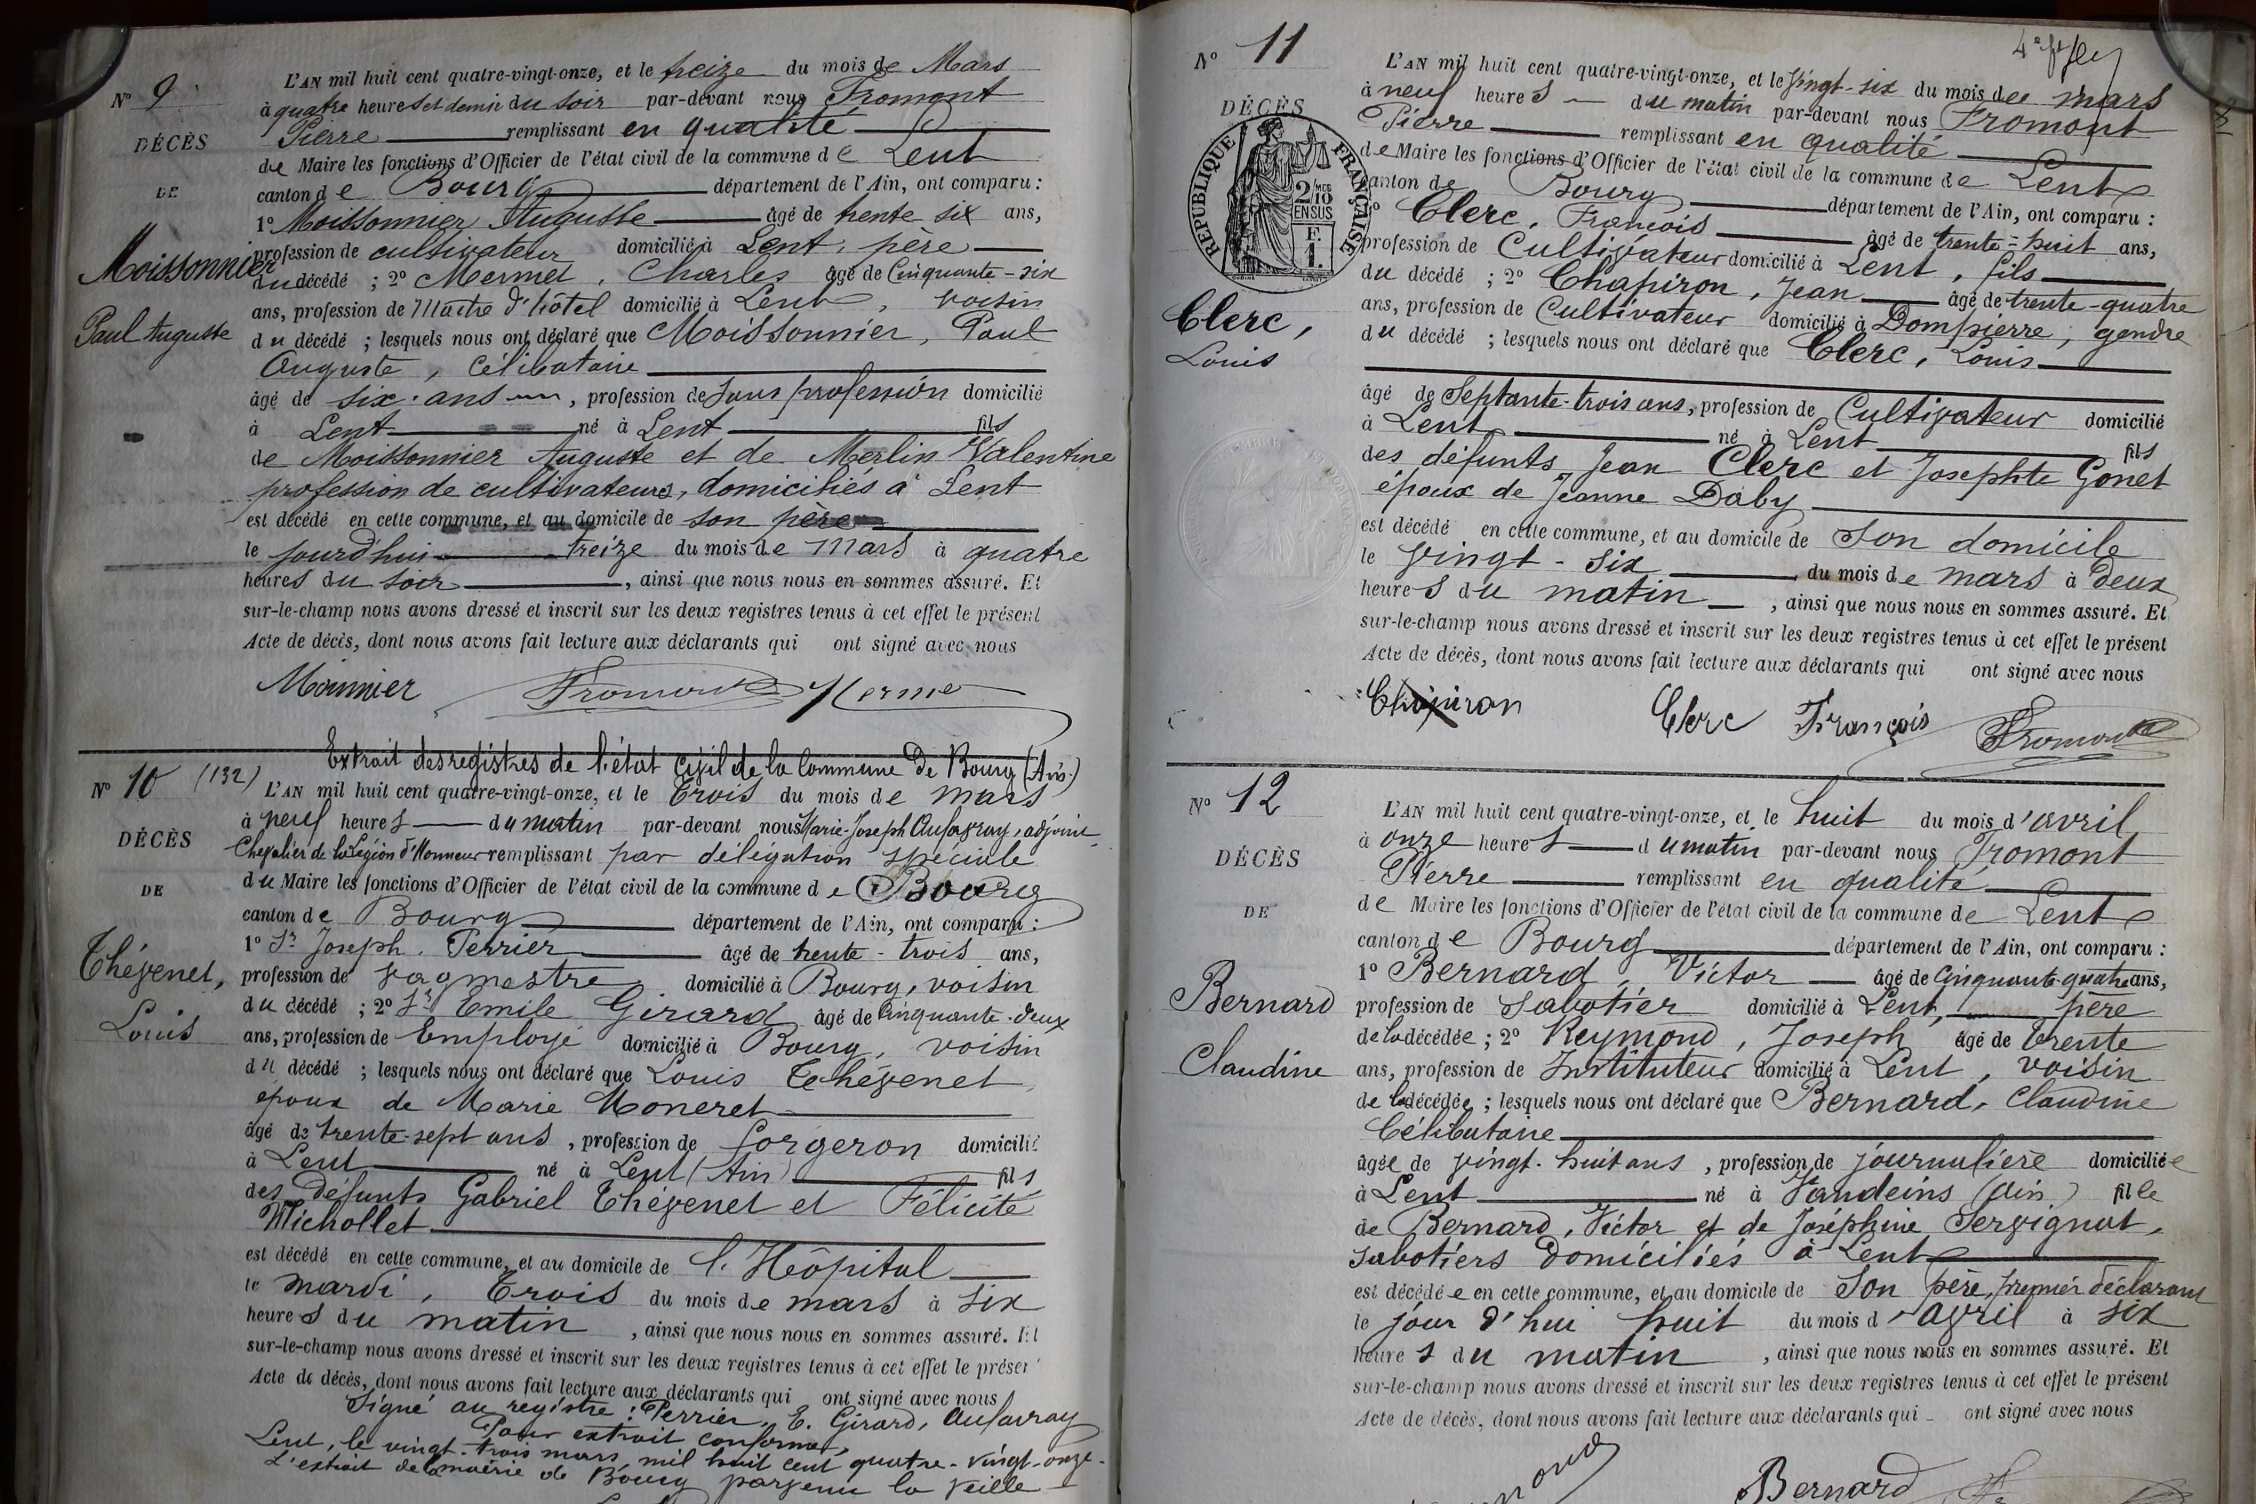 Nº 9
DÉCÈS
DE
Moissonnier
Paul Auguste
L'AN mil huit cent quatre-vingt-onze, et le treize du mois de Mars
à quatre heures et demie du soir par-devant nous Fromont
Pierre remplissant en qualité
de Maire les fonctions d'Officier de l'état civil de la commune de Lent
canton de Bourg département de l'Ain, ont comparu :
1º Moissonnier Auguste âgé de trente six ans,
profession de cultivateur domicilié à Lent, père
du décédé ; 2º Mermet, Charles âgé de Cinquante-six
ans, profession de Maître d'hôtel domicilié à Lent, voisin
du décédé ; lesquels nous ont déclaré que Moissonnier, Paul
Auguste, célibataire
âgé de six ans, profession de sans profession domicilié
à Lent né à Lent fils
de Moissonnier Auguste et de Merlin Valentine
profession de cultivateurs, domiciliés à Lent
est décédé en cette commune, et au domicile de son père
le jourd'hui treize du mois de Mars à quatre
heures du soir, ainsi que nous nous en sommes assuré. Et
sur-le-champ nous avons dressé et inscrit sur les deux registres tenus à cet effet le présent
Acte de décès, dont nous avons fait lecture aux déclarants qui ont signé avec nous
Fromont
Extrait des registres de l'état civil de la Commune de Bourg (Ain.)
Nº 10 (132)
DÉCÈS
DE
Thévenet,
Louis
L'AN mil huit cent quatre-vingt-onze, et le Trois du mois de mars
à neuf heures du matin par-devant nous Marie-Joseph Aufavray, adjoint
Chevalier de la Légion d'Honneur remplissant par délégation spéciale
du Maire les fonctions d'Officier de l'état civil de la commune de Bourg
canton de Bourg département de l'Ain, ont comparu :
1º Sr Joseph Perrier âgé de trente-trois ans,
profession de vagmestre domicilié à Bourg, voisin
du décédé ; 2º Sr Emile Girard âgé de Cinquante-deux
ans, profession de Employé domicilié à Bourg, voisin
du décédé ; lesquels nous ont déclaré que Louis Thévenet,
époux de Marie Moneret
âgé de trente-sept ans, profession de forgeron domicilié
à Lent né à Lent (Ain) fils
des défunts Gabriel Thévenet et Félicité
Michollet
est décédé en cette commune, et au domicile de l'Hôpital
le mardi, Trois du mois de mars à six
heures du matin, ainsi que nous nous en sommes assuré. Et
sur-le-champ nous avons dressé et inscrit sur les deux registres tenus à cet effet le présent
Acte de décès, dont nous avons fait lecture aux déclarants qui ont signé avec nous
Signé au registre : Perrier, E. Girard, Aufavray
Pour extrait conforme,
Lent, le vingt-trois mars, mil huit cent quatre-vingt-onze.
L'extrait de la mairie de Bourg parvenu la veille
Nº 11
DÉCÈS
RÉPUBLIQUE FRANÇAISE
2/10 EN SUS
F.
1.
Clerc,
Louis
L'AN mil huit cent quatre-vingt-onze, et le vingt-six du mois de mars
à neuf heures du matin par-devant nous Fromont
Pierre remplissant en qualité
de Maire les fonctions d'Officier de l'état civil de la commune de Lent
canton de Bourg département de l'Ain, ont comparu :
1º Clerc, François âgé de trente-huit ans,
profession de Cultivateur domicilié à Lent, fils
du décédé ; 2º Chapiron, Jean âgé de trente-quatre
ans, profession de Cultivateur domicilié à Dompierre, gendre
du décédé ; lesquels nous ont déclaré que Clerc, Louis
âgé de Septante-trois ans, profession de Cultivateur domicilié
à Lent né à Lent fils
des défunts Jean Clerc et Josephte Gonet
époux de Jeanne Daby
est décédé en cette commune, et au domicile de Son domicile
le vingt-six du mois de mars à deux
heures du matin, ainsi que nous nous en sommes assuré. Et
sur-le-champ nous avons dressé et inscrit sur les deux registres tenus à cet effet le présent
Acte de décès, dont nous avons fait lecture aux déclarants qui ont signé avec nous
Chapiron Clerc François Fromont
Nº 12
DÉCÈS
DE
Bernard
Claudine
L'AN mil huit cent quatre-vingt-onze, et le huit du mois d'avril
à onze heures du matin par-devant nous Fromont
Pierre remplissant en qualité
de Maire les fonctions d'Officier de l'état civil de la commune de Lent
canton de Bourg département de l'Ain, ont comparu :
1º Bernard, Victor âgé de Cinquante quatre ans,
profession de Sabotier domicilié à Lent, père
de la décédée ; 2º Reymond, Joseph âgé de trente
ans, profession de Instituteur domicilié à Lent, voisin
de la décédée ; lesquels nous ont déclaré que Bernard, Claudine
Célibataire
âgée de vingt-huit ans, profession de journalière domiciliée
à Lent né à Vandeins (Ain) fille
de Bernard, Victor et de Joséphine Servignat,
sabotiers domiciliés à Lent
est décédée en cette commune, et au domicile de Son père, premier déclarant
le jour d'hui huit du mois d'avril à six
heures du matin, ainsi que nous nous en sommes assuré. Et
sur-le-champ nous avons dressé et inscrit sur les deux registres tenus à cet effet le présent
Acte de décès, dont nous avons fait lecture aux déclarants qui ont signé avec nous
Bernard